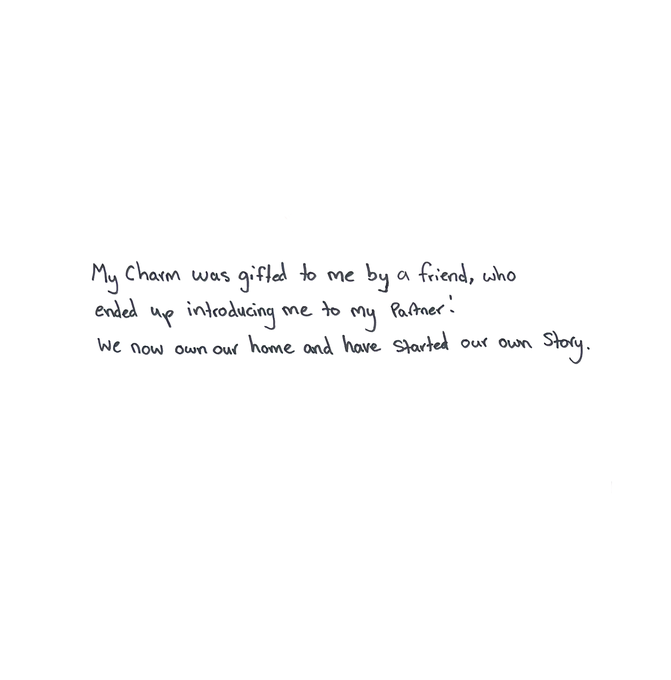 My Charm was gifted to me by a friend, who
ended up introducing me to my Partner!
We now own our home and have started our own Story.